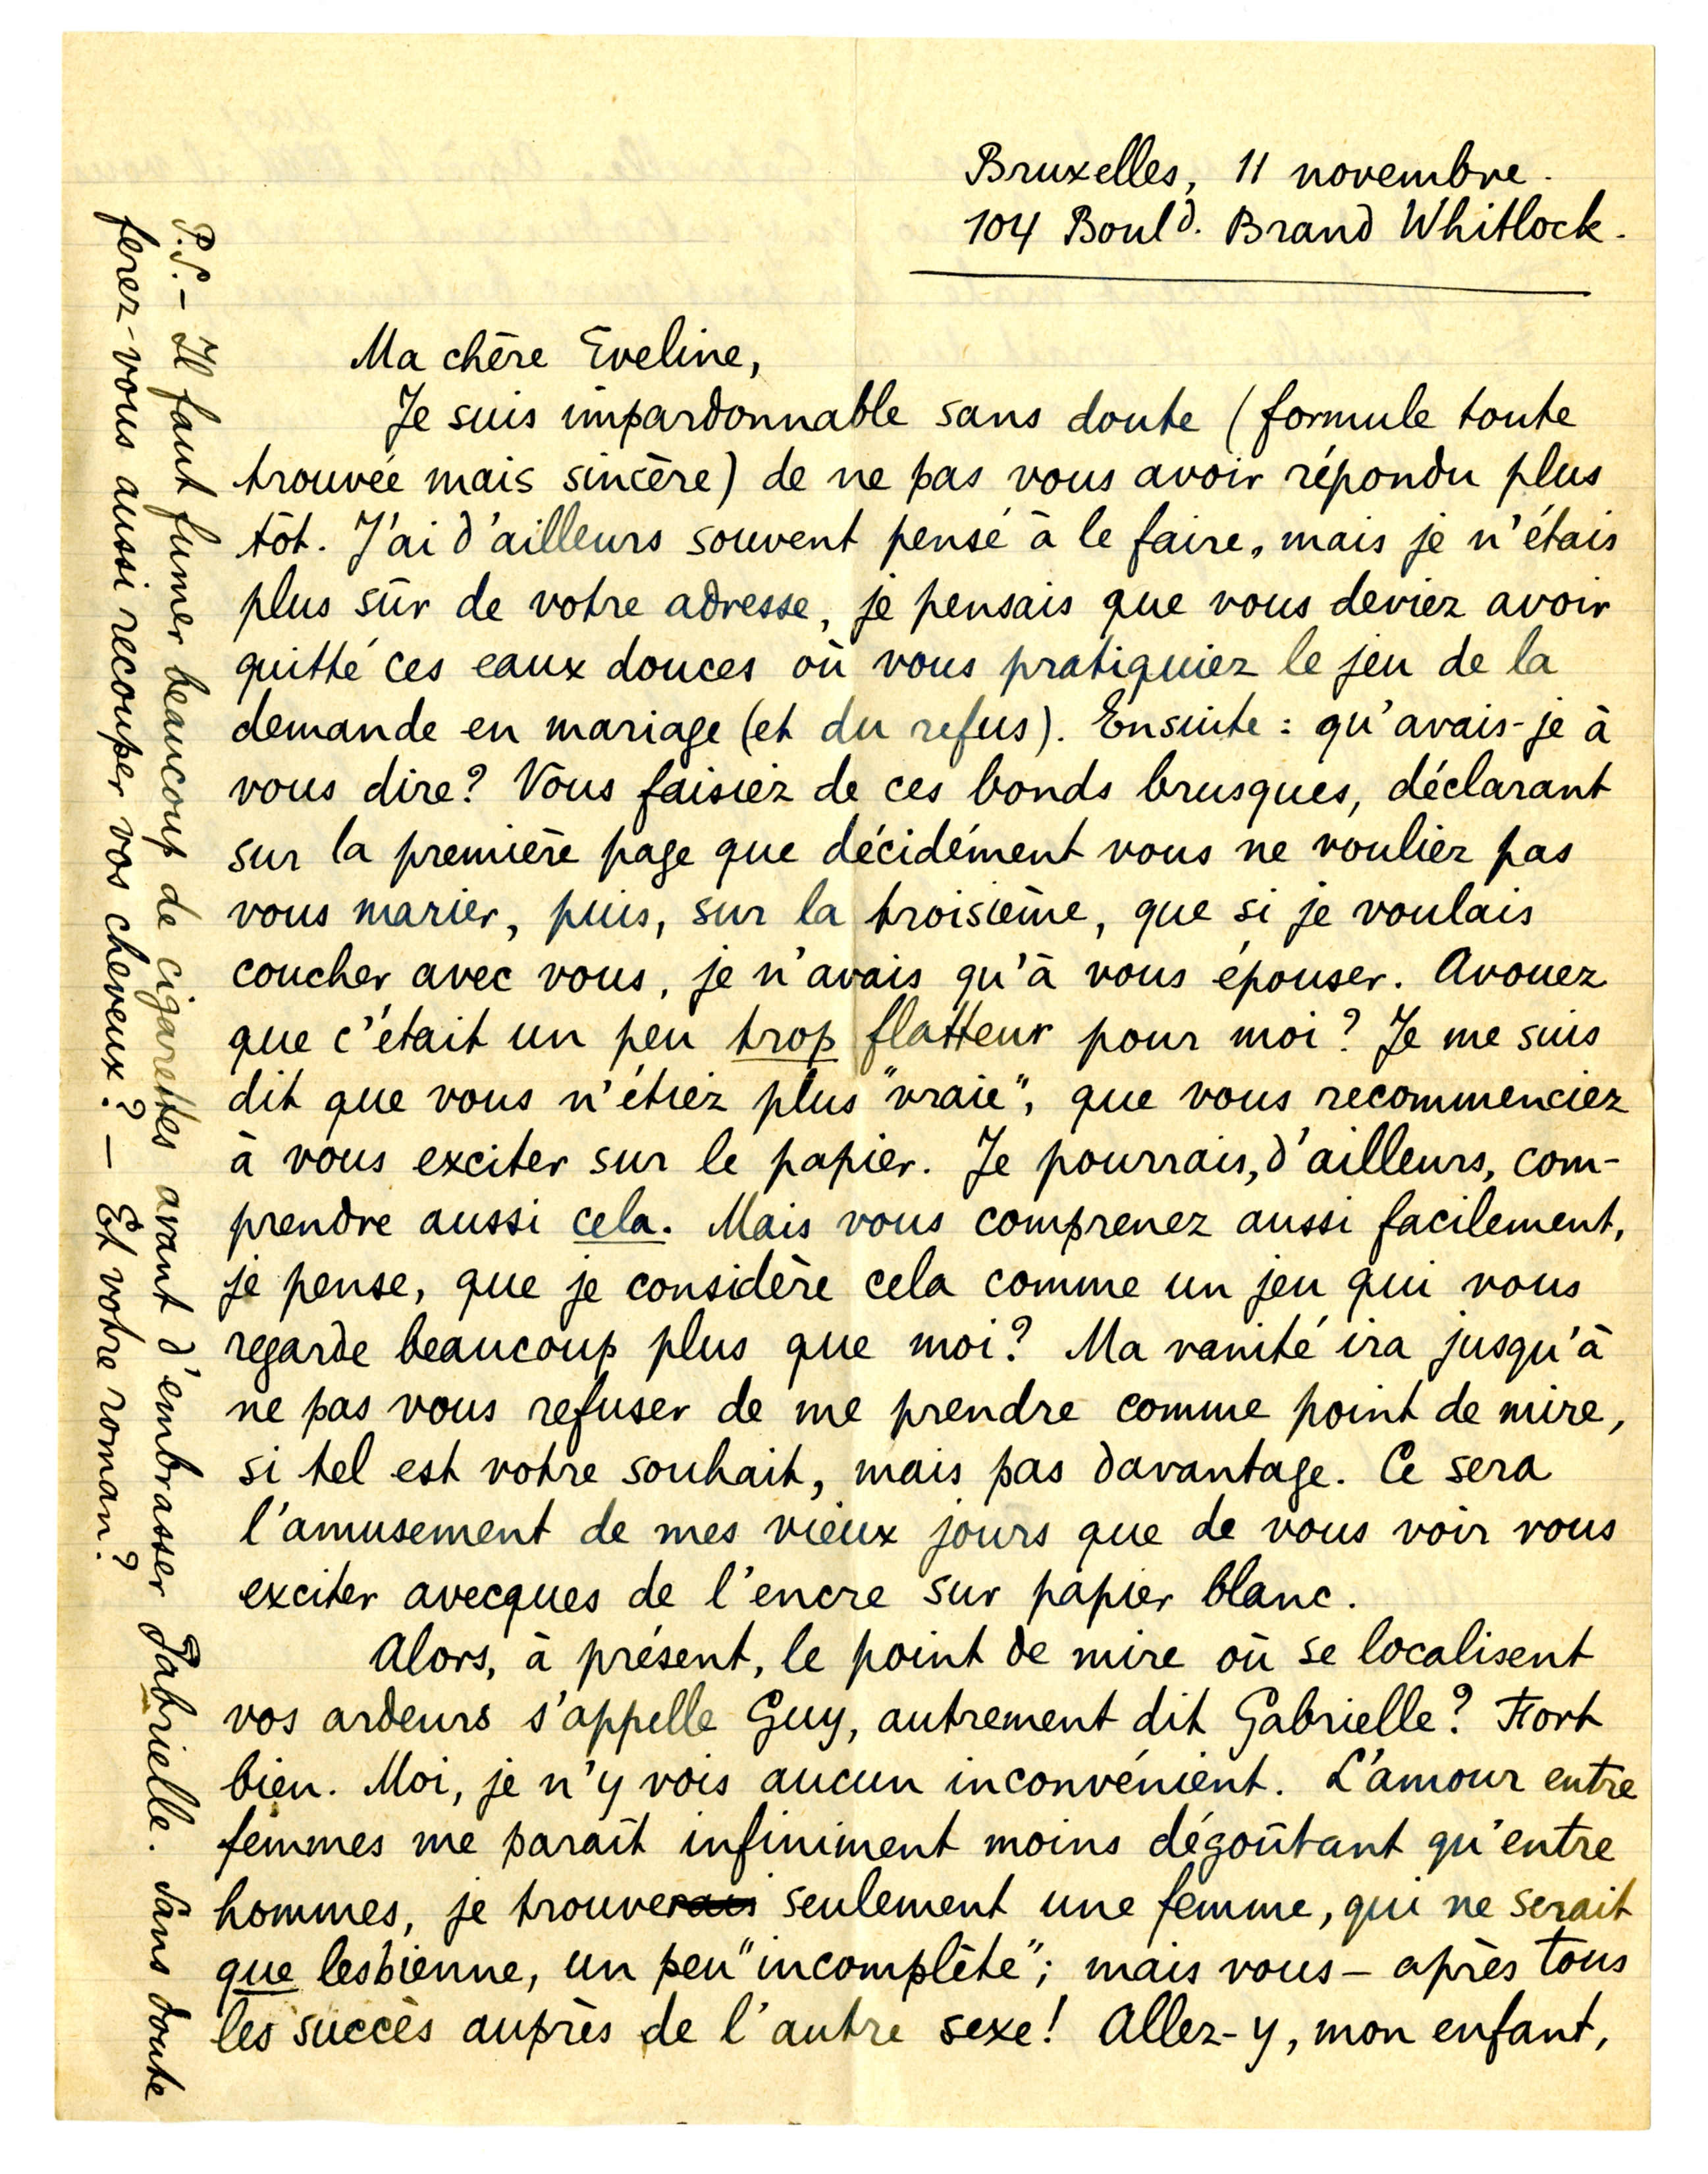 Bruxelles, 11 novembre.
104 Bould. Brand Whitlock.
Ma chère Eveline,
Je suis impardonnable sans doute (formule toute
trouvée mais sincère) de ne pas vous avoir répondu plus
tôt. J'ai d'ailleurs souvent pensé à le faire, mais je n'étais
plus sûr de votre adresse, je pensais que vous deviez avoir
quitté ces eaux douces où vous pratiquiez le jeu de la
demande en mariage (et du refus). Ensuite : qu'avais-je à
vous dire? Vous faisiez de ces bonds brusques, déclarant
sur la première page que décidément vous ne vouliez pas
vous marier, puis, sur la troisième, que si je voulais
coucher avec vous, je n'avais qu'à vous épouser. Avouez
que c'était un peu trop flatteur pour moi? Je me suis
dit que vous n'étiez plus "vraie", que vous recommenciez
à vous exciter sur le papier. Je pourrais, d'ailleurs, com-
prendre aussi cela. Mais vous comprenez aussi facilement,
je pense, que je considère cela comme un jeu qui vous
regarde beaucoup plus que moi? Ma vanité ira jusqu'à
ne pas vous refuser de me prendre comme point de mire,
si tel est votre souhait, mais pas davantage. Ce sera
l'amusement de mes vieux jours que de vous voir vous
exciter avecques de l'encre sur papier blanc.
Alors, à présent, le point de mire où se localisent
vos ardeurs s'appelle Guy, autrement dit Gabrielle? Fort
bien. Moi, je n'y vois aucun inconvénient. L'amour entre
femmes me paraît infiniment moins dégoûtant qu'entre
hommes, je trouverais seulement une femme, qui ne serait
que lesbienne, un peu "incomplète"; mais vous – après tous
les succès auprès de l'autre sexe! Allez-y, mon enfant,
P.S. – Il faut fumer beaucoup de cigarettes avant d'embrasser Gabrielle. Sans doute
ferez-vous aussi recouper vos cheveux? – Et votre roman?